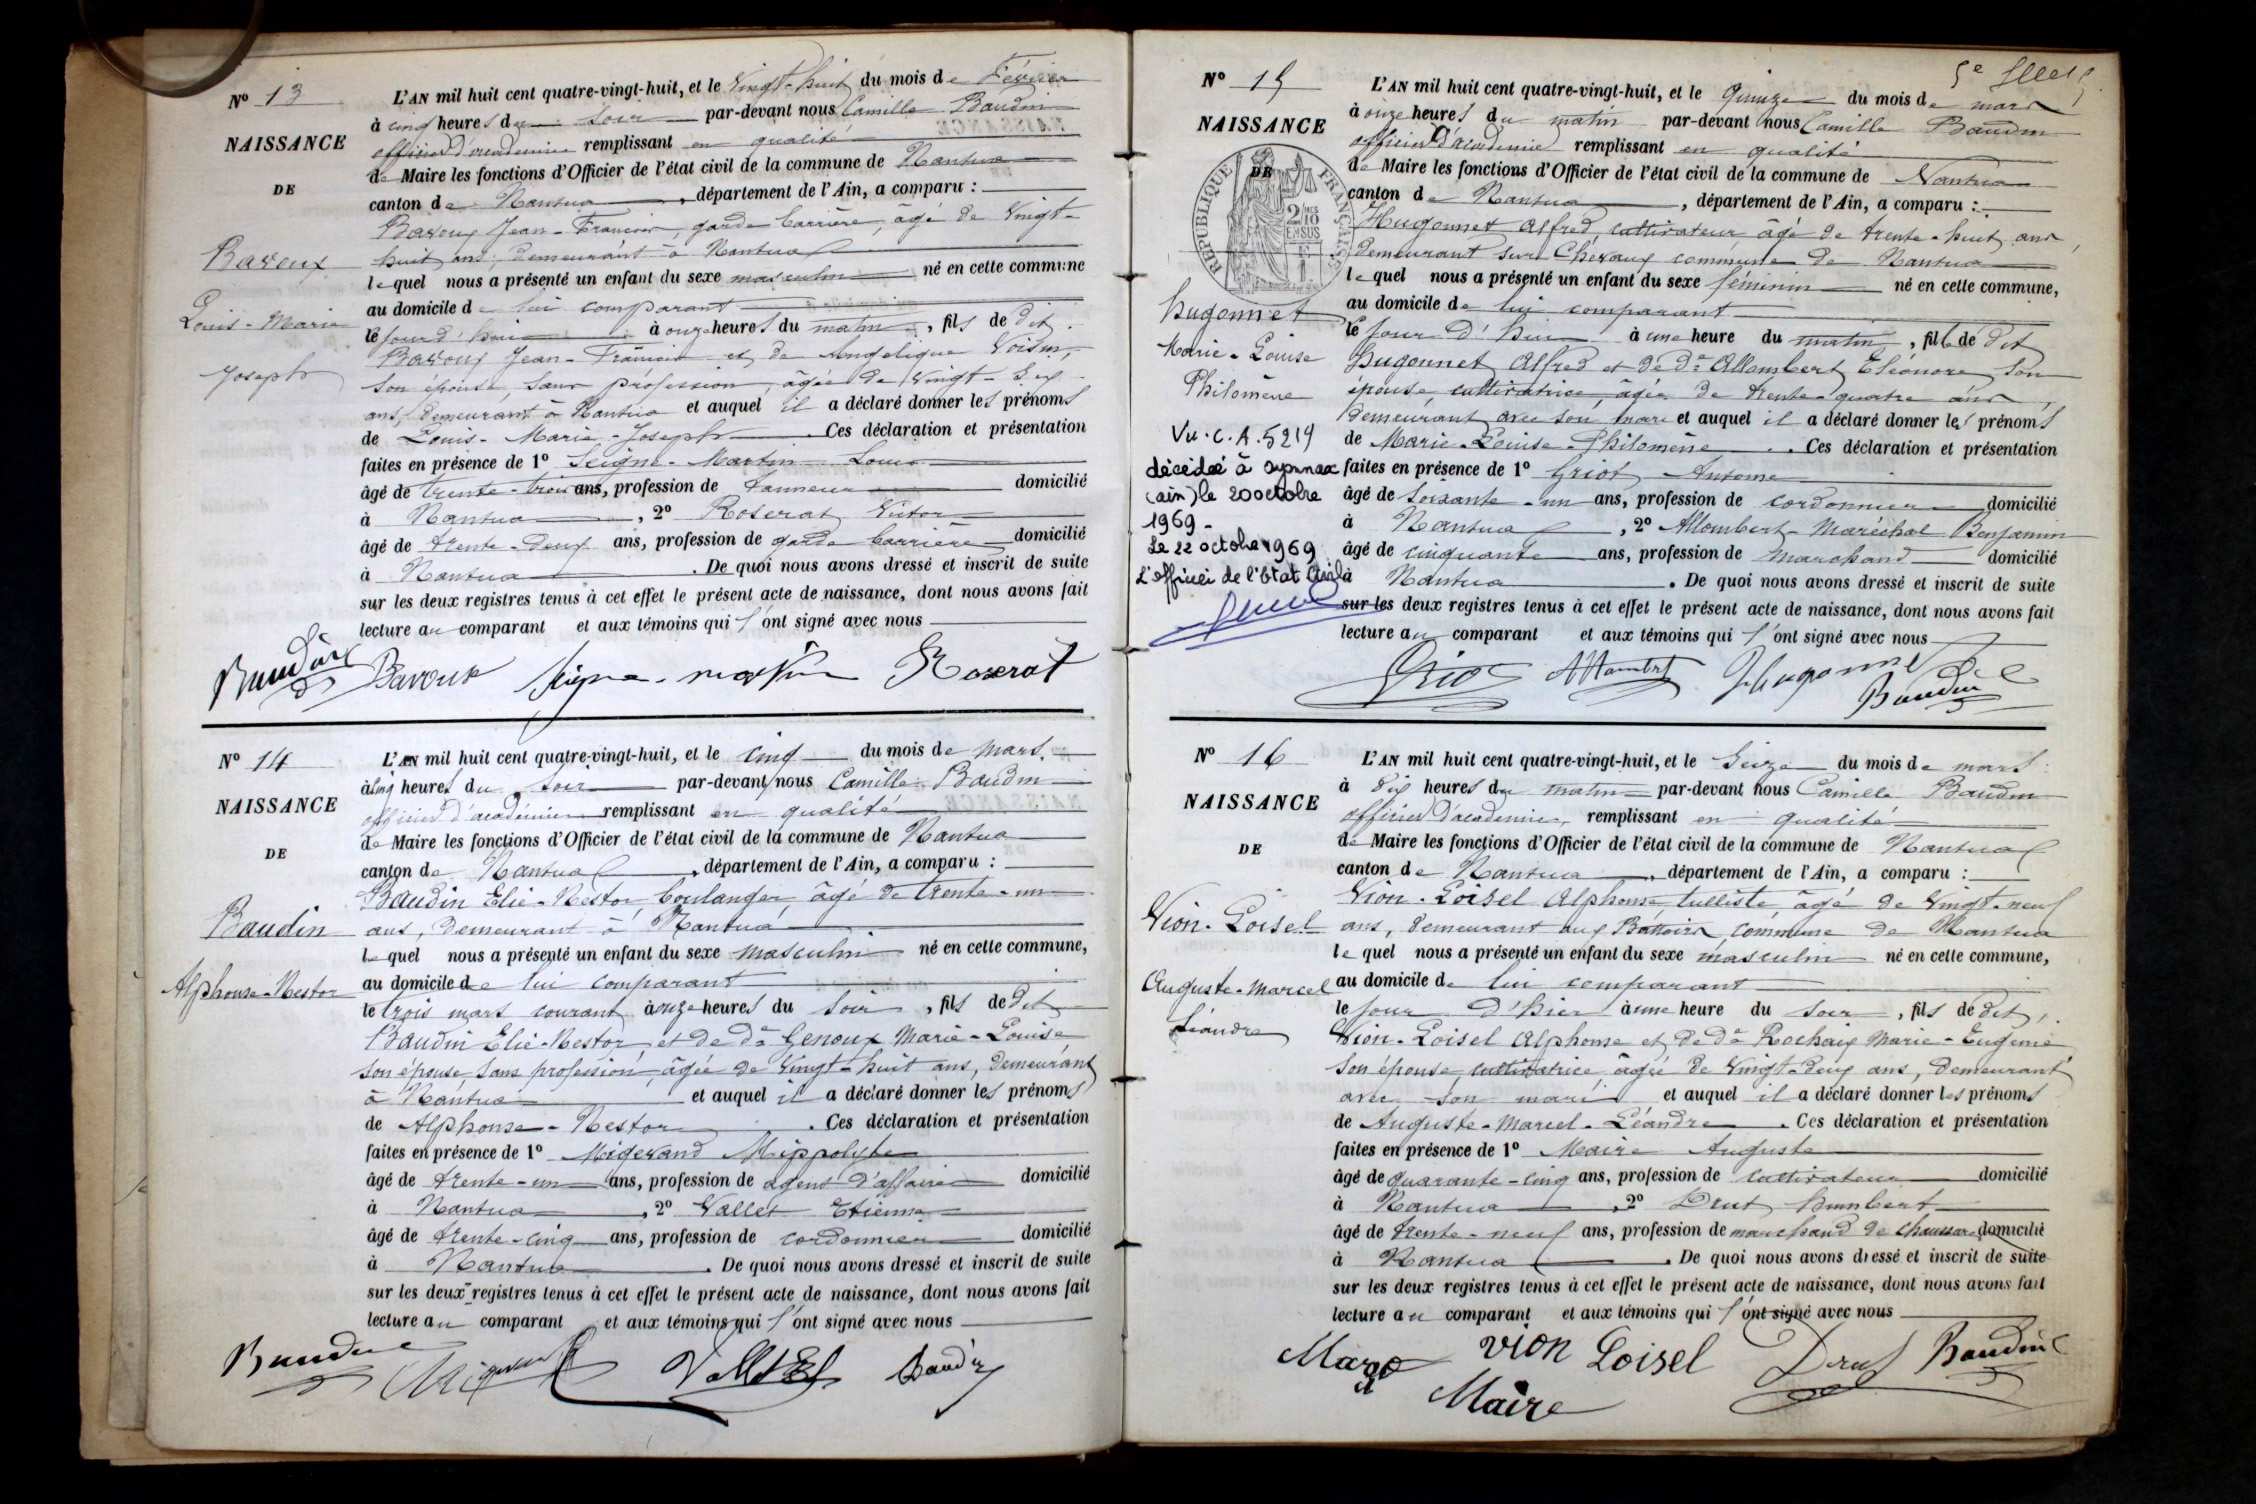 Nº 13
NAISSANCE
DE
Bavoux
Louis-Marie
Joseph
L'AN mil huit cent quatre-vingt-huit, et le Vingt-huit du mois de Février
à cinq heures du soir par-devant nous Camille Baudin
officier d'académie remplissant en qualité
de Maire les fonctions d'Officier de l'état civil de la commune de Nantua
canton de Nantua, département de l'Ain, a comparu :
Bavoux Jean-François, garde barrière, âgé de Vingt-
huit ans, demeurant à Nantua
lequel nous a présenté un enfant du sexe masculin né en cette commune
au domicile de lui comparant
le jourd'hui à onze heures du matin, fils de dit
Bavoux Jean-François et de Angélique Voisin,
son épouse, sans profession, âgée de Vingt-six
ans, demeurant à Nantua et auquel il a déclaré donner les prénoms
de Louis-Marie-Joseph. Ces déclaration et présentation
faites en présence de 1º Seigne-Martin Louis
âgé de trente-trois ans, profession de tanneur domicilié
à Nantua, 2º Roserat Victor
âgé de trente-deux ans, profession de garde barrière domicilié
à Nantua. De quoi nous avons dressé et inscrit de suite
sur les deux registres tenus à cet effet le présent acte de naissance, dont nous avons fait
lecture au comparant et aux témoins qui l'ont signé avec nous
Baudin Bavoux Seigne-Martin Roserat
Nº 14
NAISSANCE
DE
Baudin
Alphonse-Nestor
L'AN mil huit cent quatre-vingt-huit, et le cinq du mois de mars
à cinq heures du soir par-devant nous Camille Baudin
officier d'académie remplissant en qualité
de Maire les fonctions d'Officier de l'état civil de la commune de Nantua
canton de Nantua, département de l'Ain, a comparu :
Baudin Elie-Nestor boulanger, âgé de trente-un
ans, demeurant à Nantua
lequel nous a présenté un enfant du sexe masculin né en cette commune,
au domicile de lui comparant
le trois mars courant à onze heures du soir, fils de dit
Baudin Elie-Nestor et de de Genoux Marie-Louise
son épouse, sans profession, âgée de Vingt-huit ans, demeurant
à Nantua et auquel il a déclaré donner les prénoms
de Alphonse-Nestor. Ces déclaration et présentation
faites en présence de 1º Migerand Hippolyte
âgé de trente-un ans, profession de agent d'affaires domicilié
à Nantua, 2º Vallet Etienne
âgé de trente-cinq ans, profession de cordonnier domicilié
à Nantua. De quoi nous avons dressé et inscrit de suite
sur les deux registres tenus à cet effet le présent acte de naissance, dont nous avons fait
lecture au comparant et aux témoins qui l'ont signé avec nous
Baudin Migerand Vallet E Baudin
5e
Nº 15
NAISSANCE
DE
RÉPUBLIQUE FRANÇAISE
2/10 EN SUS
Hugonnet
Marie-Louise
Philomène
Vu. C. A. 5219
décédée à oyonnax
(ain) le 20 octobre
1969-
Le 22 octobre 1969
L'officier de l'Etat Civil
L'AN mil huit cent quatre-vingt-huit, et le quinze du mois de mars
à onze heures du matin par-devant nous Camille Baudin
officier d'académie remplissant en qualité
de Maire les fonctions d'Officier de l'état civil de la commune de Nantua
canton de Nantua, département de l'Ain, a comparu :
Hugonnet Alfred, cultivateur âgé de trente-huit ans,
demeurant sur Chevaux commune de Nantua
lequel nous a présenté un enfant du sexe féminin né en cette commune,
au domicile de lui comparant
le jour d'hui à une heure du matin, fille de dit
Hugonnet Alfred et de de Allombert Eléonore son
épouse cultivatrice, âgée de trente-quatre ans,
demeurant avec son mari et auquel il a déclaré donner les prénoms
de Marie-Louise-Philomène. Ces déclaration et présentation
faites en présence de 1º Griot Antoine
âgé de soixante-un ans, profession de cordonnier domicilié
à Nantua, 2º Allombert-Maréchal Benjamin
âgé de cinquante ans, profession de marchand domicilié
à Nantua. De quoi nous avons dressé et inscrit de suite
sur les deux registres tenus à cet effet le présent acte de naissance, dont nous avons fait
lecture au comparant et aux témoins qui l'ont signé avec nous
Griot Allombert Hugonnet
Baudin
Nº 16
NAISSANCE
DE
Vion-Loisel
Auguste-Marcel
Léandre
L'AN mil huit cent quatre-vingt-huit, et le seize du mois de mars
à dix heures du matin par-devant nous Camille Baudin
officier d'académie, remplissant en qualité
de Maire les fonctions d'Officier de l'état civil de la commune de Nantua
canton de Nantua, département de l'Ain, a comparu :
Vion-Loisel Alphonse tulliste âgé de Vingt-neuf
ans, demeurant aux Battoirs, commune de Nantua
lequel nous a présenté un enfant du sexe masculin né en cette commune,
au domicile de lui comparant
le jour d'hier à une heure du soir, fils de dit
Vion-Loisel Alphonse et de de Rochaix Marie-Eugénie
son épouse, cultivatrice âgée de Vingt-deux ans, demeurant
avec son mari et auquel il a déclaré donner les prénoms
de Auguste-Marcel-Léandre. Ces déclaration et présentation
faites en présence de 1º Maire Auguste
âgé de quarante-cinq ans, profession de cultivateur domicilié
à Nantua, 2º Drut humbert
âgé de trente-neuf ans, profession de marchand de chaussures domicilié
à Nantua. De quoi nous avons dressé et inscrit de suite
sur les deux registres tenus à cet effet le présent acte de naissance, dont nous avons fait
lecture au comparant et aux témoins qui l'ont signé avec nous
vion Loisel Drut Baudin
Maire